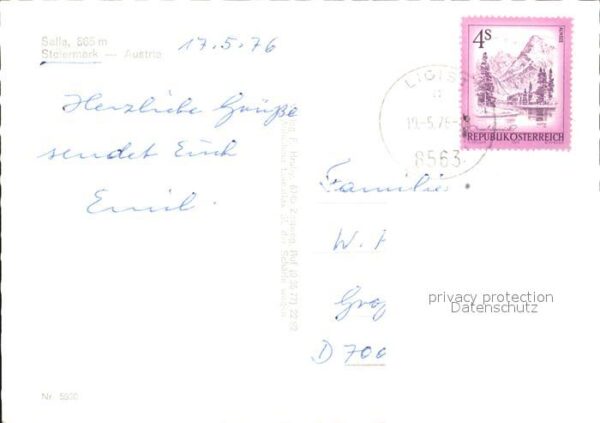 Salla, 865 m
Steiermark — Austria
17.5.76
Herzliche Grüße
sendet Euch
Emil.
4S
REPUBLIK ÖSTERREICH
LIGIST
19.-5.76
8563
Familie
W.
D 700
privacy protection
Datenschutz
Nr.